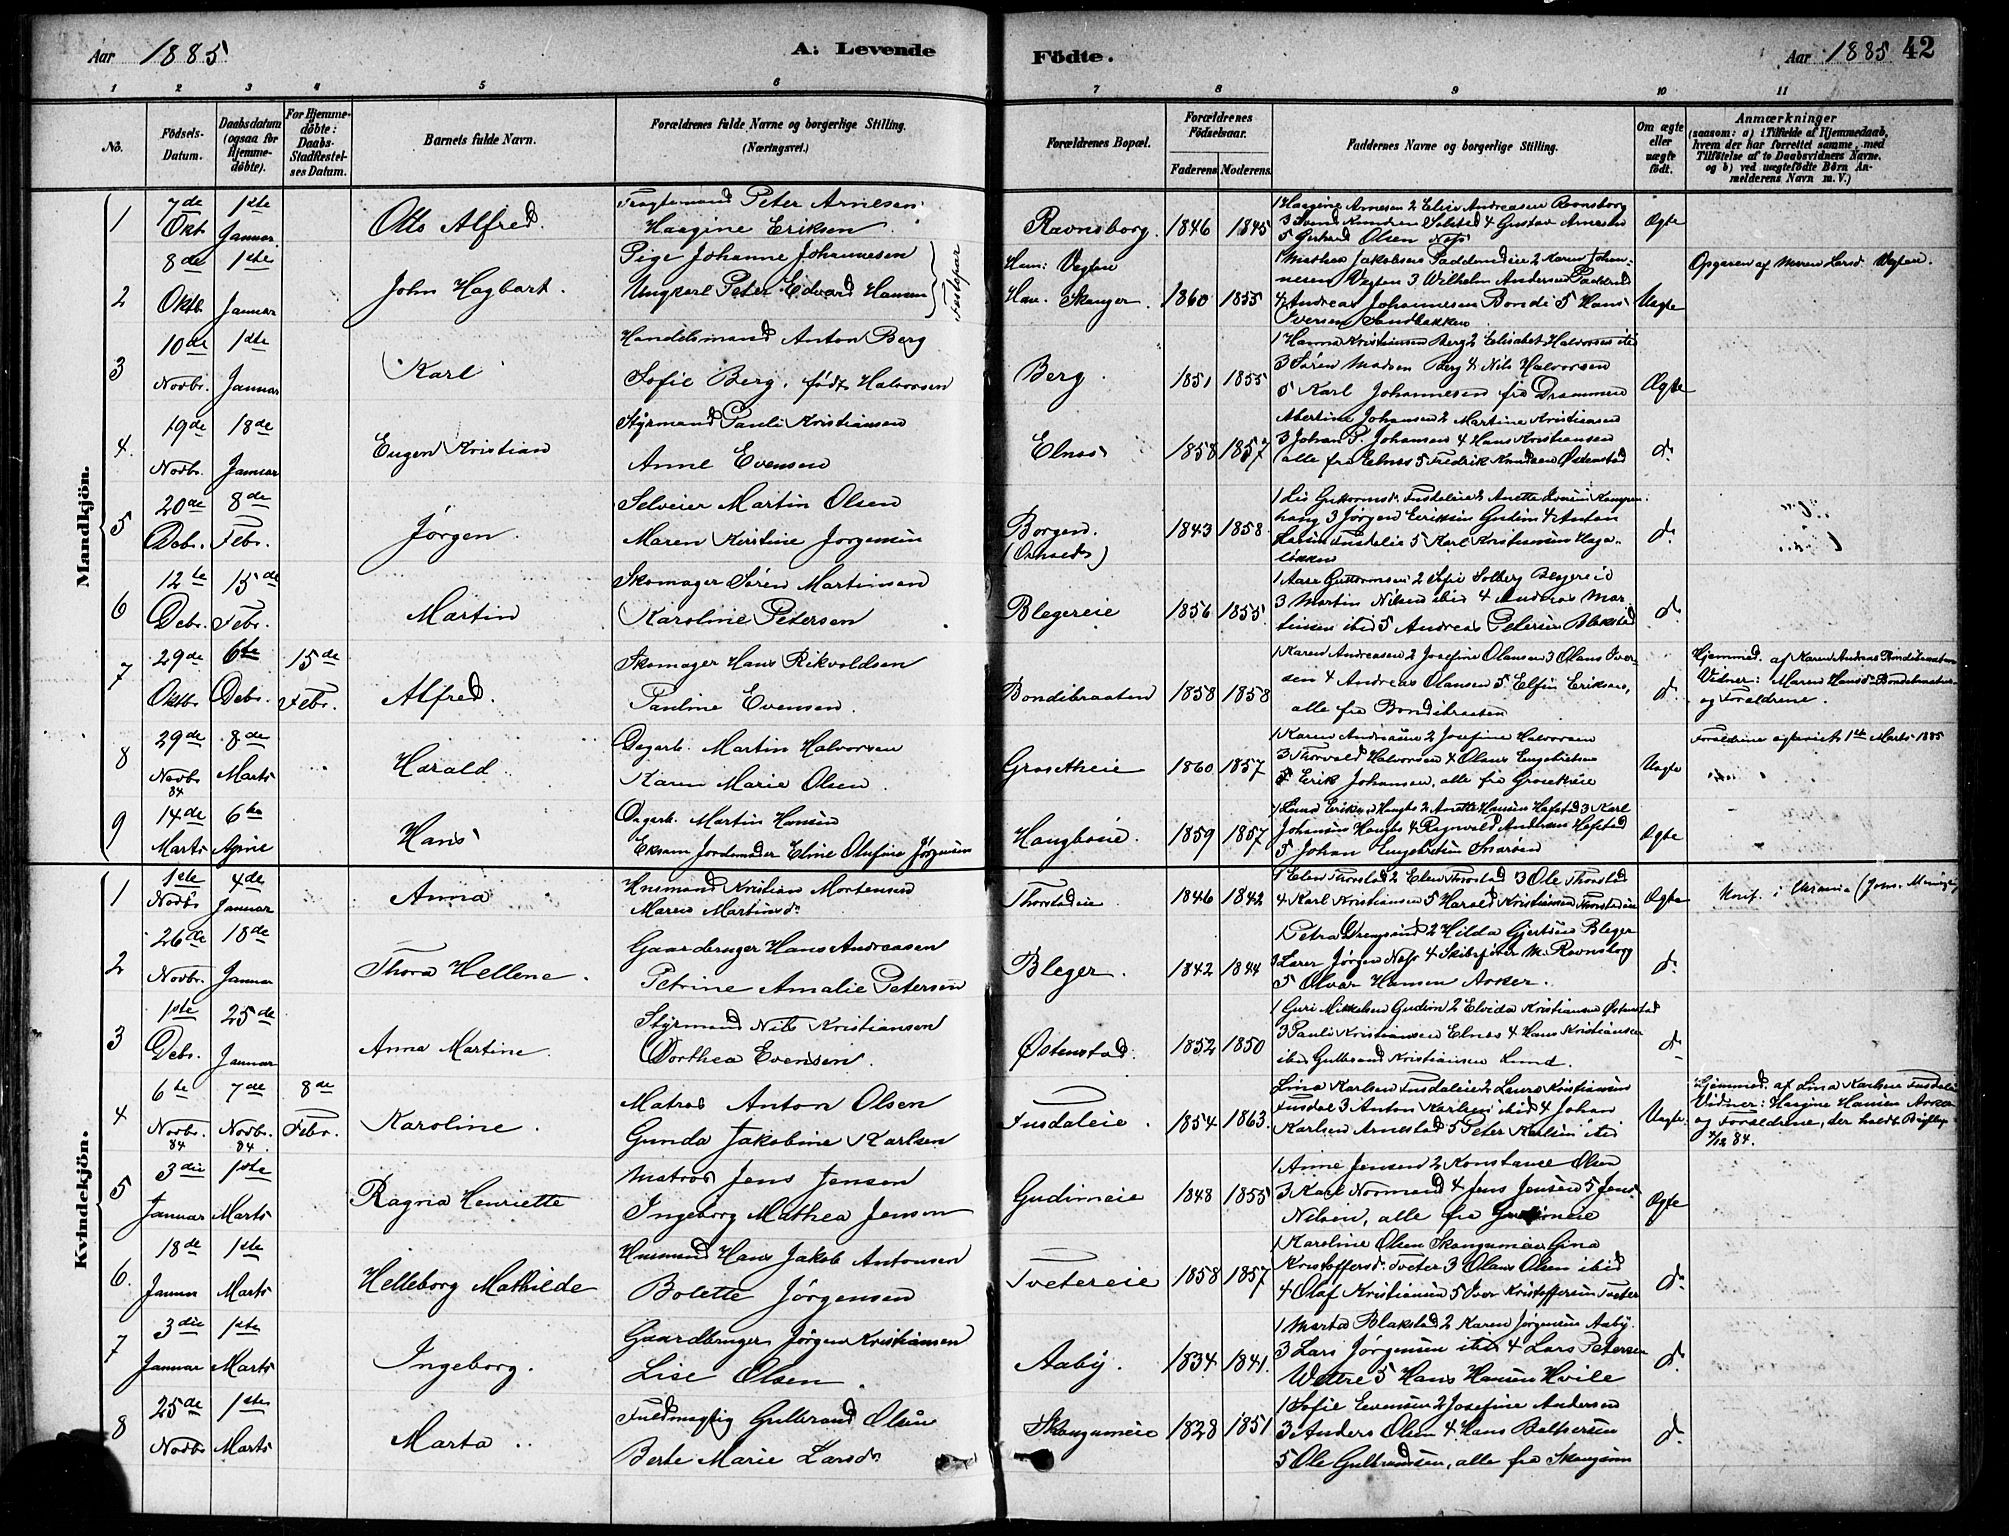 Aar 1885 A. Levende Födte. Aar 1885 42
1 2 3 4 5 6 7 8 9 10 11
No.
Födsels-Datum.
Daabsdatum (ogsaa for Hjemme-döbte).
For Hjemme-döbte: Daabs-Stadfæstel-ses Datum.
Barnets fulde Navn.
Forældrenes fulde Navne og borgerlige Stilling. (Næringsvei.)
Forældrenes Bopæl.
Forældrenes Födselsaar.
Faderens Moderens
Faddernes Navne og borgerlige Stilling.
Om ægte eller uægte födt.
Anmærkninger
(saasom: a) i Tilfælde af Hjemmedaab, hvem der har forrettet samme, med Tilföielse af to Daabsvidners Navne, og b) ved uægtefödte Börn An-melderens Navn m. V.)
Mandkjön.
1 7de Oktb. 1ste Januar Otto Alfred. Peter Arnesen Haagine Eriksen Ravnsborg. 1846 1845
1 Haagine Arnesen 2 Elise Andreasen Ravnsborg
4 Gustav Arnesen
5 Gerhard Olsen Næs
Ægte
2 8de Oktb. 1ste Januar John Hagbart. Pige Johanne Johannesen Ungkarl Peter Edvard Hansen Fæstepar
Hun: Vogten Han. Skauger 1860 1855
1 Mathea Jakobsen 2 Karen Johan-
nesen Vogten 3 Wilhelm Andersen
4 Andreas Johannesen Bondi 5 Hans
Iversen Sandbakken
Uægte
Opgaven af Maren Larsd. Vogten.
3 10de Novbr. 1ste Januar Karl Handelsmand Anton Berg Sofie Berg, født Halvorsen Berg. 1851 1855
1 Hanna Kristiansen Berg 2 Elisabet Halvorsen ibid
3 Søren Madsen Berg 4 Nils Halvorsen
5 Karl Johannesen fra Drammen
Ægte
4. 19de Novbr. 18de Januar Eugen Kristian Styrmand Pauli Kristiansen Anne Evensen Elnes 1858 1857
Albertine Johansen 2 Martine Kristiansen
3 Johan P. Johansen 4 Hans Kristiansen
alle fra Elnes 5 Fredrik Knudsen Østenstad
do
5 20de Debr. 8de Febr. Jørgen. Selveier Martin Olsen Maren Kirstine Jørgensen Borgen. 1843 1858.
3 Jørgen Eriksen Gudim 4 Anton
5 Karl Kristiansen Haga-
løkken
do
6 12te Debr. 15de Febr. Martin Skomager Søren Martinsen Karoline Petersen Blegereie 1856 1855.
1 Aase Guttormsen 2 Sofie Solberg Blegereie
3 Martin Nilsen ibid 4 Andreas Mar-
tinsen ibid 5 Andreas Petersen Blakstad
do
7 29de Oktb. 6te Debr. 15de Febr. Alfred. Skomager Hans Rikvoldsen Pauline Evensen. Bondibraaten 1858 1858
1 Karen Andreasen 2 Josefine Olausen 3 Olaus Iver-
sen 4 Andreas Olausen 5 Elfin Eriksen,
alle fra Bondibraaten
do
Hjemmed. af Karen Andreas. Bondibraaten
Vidner: Maren Hansd. Bondibraaten
og Forældrene.
8 29de Novbr 84 8de Marts Harald Dagarb. Martin Halvorsen Karen Marie Olsen. Grosetheie 1860 1857
1 Karen Andreasen 2 Josefine Halvorsen
3 Thorvald Halvorsen 4 Olaus Engebretsen
5 Erik Johansen, alle fra Groseteie
Uægte
Forældrene ægteviet 1ste Marts 1885
9 14de Marts 6te April Hans Dagarb. Martin Hansen Exam. Jordemoder Eline Olufine Jørgensen Haugboeie. 1859 1857
2 Anette Hansen Hofstad 3 Karl
Johansen 4 Ragnvald Andersen Hofstad
5 Johan Engebretsen
Ægte
Kvindekjön.
1 1ste Novbr. 4de Januar Anna Husmand Kristian Mortensen Maren Martinsd. Thorstadeie 1846 1842
1 Elen Thorstad 2 Elen Thorstad 3 Ole Thorstad
4 Karl Kristiansen 5 Harald Kristiansen Thorstadeie
Ægte
2 26de Novbr. 18de Januar Thora Hellene. Gaardbruger Hans Andreasen Petrine Amalie Petersen Bleger. 1842 1844
2 Hilda Gjertsen Bleger
3 Lærer Jørgen Næss 4 Skibsfører M. Ravnsborg
5 Olvar Hansen Asker.
do
3 1ste Debr. 25de Januar Anna Martine. Styrmand Nils Kristiansen Dorthea Evensen. Østenstad. 1852 1850
1 Guri Mikkelsen Gudim 2 Elvida Kristiansen Østenstad
3 Pauli Kristiansen Elnes 4 Hans Kristiansen
ibid Gulbrand Kristiansen Lund.
do
4 6te Novbr. 84 7de Novbr. 84. 8de Febr. Karoline. Matros Anton Olsen Gunda Jakobine Karlsen Fusdaleie. 1854 1863.
Lina Karlsen Fusdaleie 2 Laura Kristiansen
Fusdal 3 Anton Karlsen ibid 4 Johan
Karlsen Arnestad 5 Peter Karlsen ibid
Uægte.
Hjemmed. af Lina Karlsen Fusdaleie
Vidner: Hagine Hansen Asker
og Forældrene, der holdt Bryllup
84.
5 3die Januar 1ste Marts Ragna Henriette Matros Jens Jensen Ingeborg Mathea Jensen Gudimeie 1848 1855
1 Anne Jensen 2 Konstance Olsen
3 Karl Normand 4 Jens Jensen 5 Jens
Nilsen, alle fra Gudimeie
Ægte
6. 18de Januar 1ste Marts Helleborg Mathilde Husmand Hans Jakob Antonsen Bolette Jørgensen Tvetereie 1858 1857
1 Karoline Olsen Skaugumeie Gina
Kristoffersd. Tveter 3 Olaus Olsen ibid
4 Olaf Kristiansen 5 Iver Kristoffersen Tveter
do
7 3die Januar 1ste Marts Ingeborg. Gaardbruger Jørgen Kristiansen Lise Olsen. Aaby. 1834 1841.
1 Marta Blakstad 2 Karen Jørgensen Aaby.
3 Lars Jørgensen ibid 4 Lars Petersen
Wettre 5 Hans Hansen Hvile
do
8 25de Novbr. 1ste Marts Marta Fuldmægtig Gulbrand Olsen Berte Marie Larsd. Skaugumeie 1828 1851
1 Sofie Evensen 2 Josefine Andersen
3 Anders Olsen 4 Hans Baltsersen
5 Ole Gulbrandsen, alle fra Skaugum
do